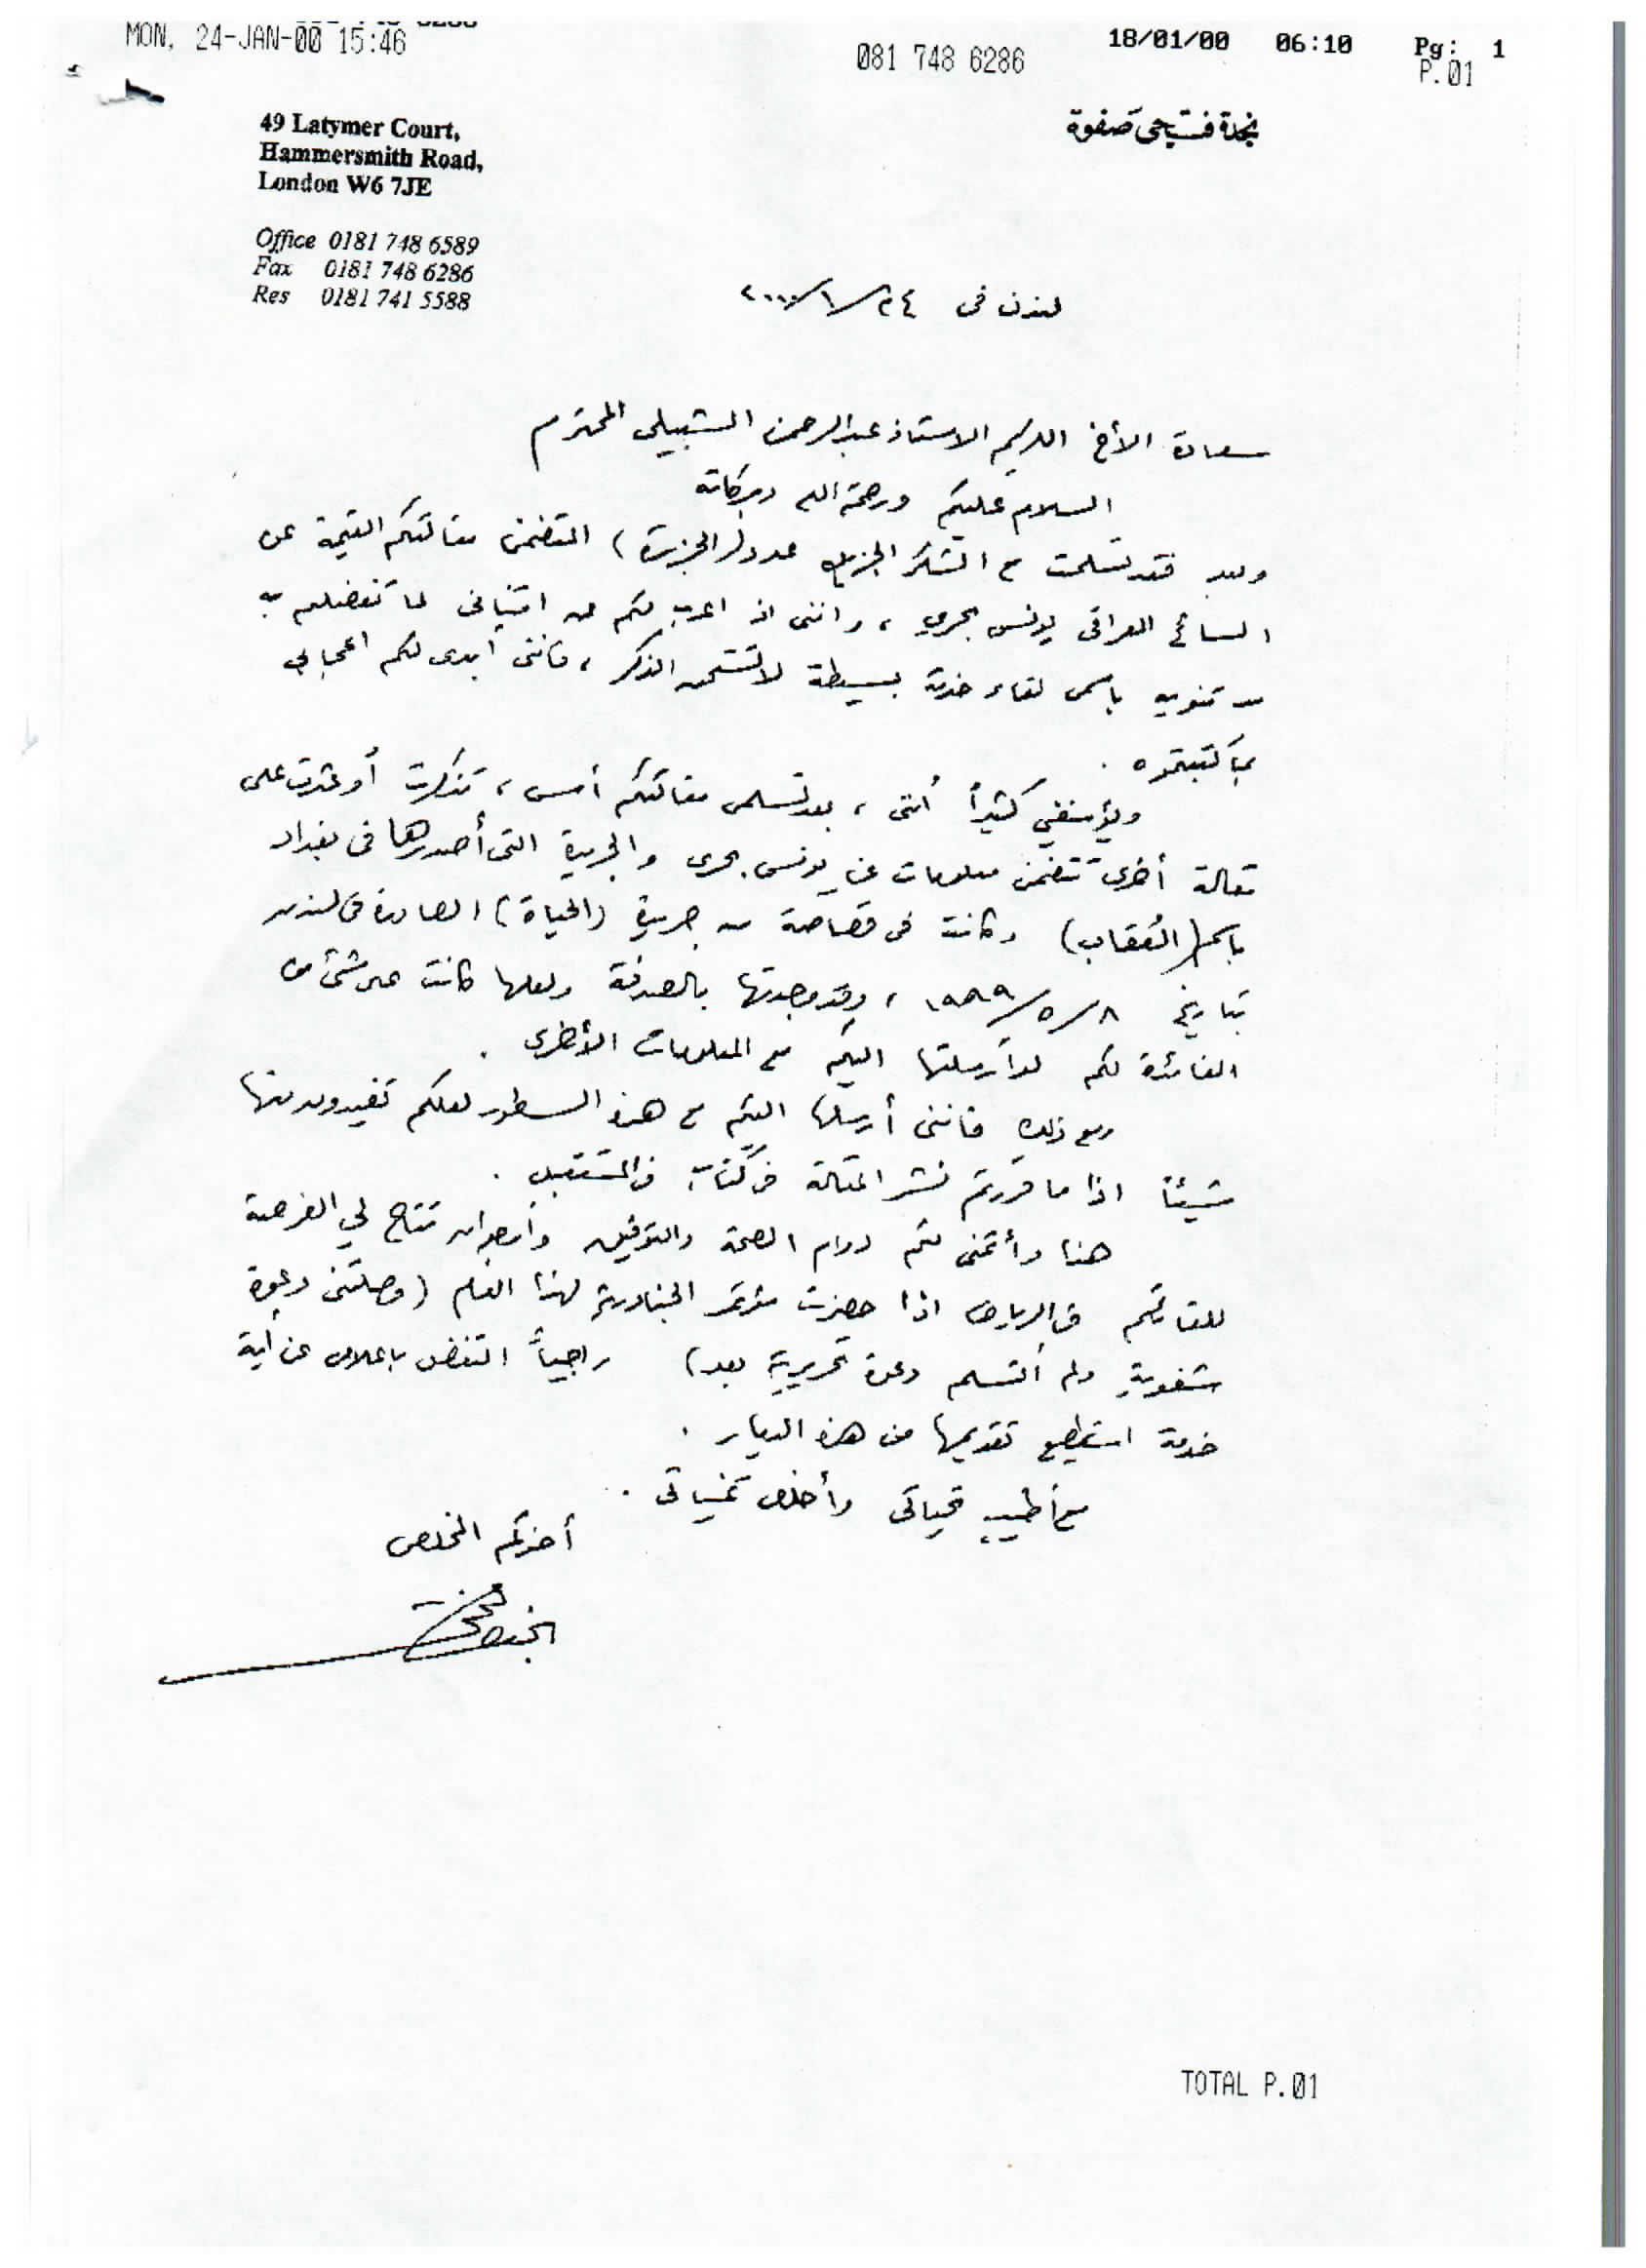 MON, 24-JAN-00 15:46
081 748 6286
18/01/00 06:10 Pg: 1
P.01
49 Latymer Court,
Hammersmith Road,
London W6 7JE
نجدة فتحي صفوة
Office 0181 748 6589
Fax 0181 748 6286
Res 0181 741 5588
لندن فى ٢٤/١/٢٠٠٠
سعادة الأخ الكريم الاستاذ عبدالرحمن الشبيلى المحترم
السلام عليكم ورحمة الله وبركاته
وبعد فقد تسلمت مع الشكر الجزيل عدد (الجزيرة) المتضمن مقالتكم القيمة عن
السائح العراقى يونس بحري، واننى اذ اعرب لكم عن امتنانى لما تفضلتم به
من تنويه باسمى لقاء خدمة بسيطة لا تستحق الذكر، فاننى أبدى لكم اعجابي
بما كتبتموه.
ويؤسفني كثيراً أننى، بعد تسلمى مقالتكم أمس، تذكرت أو عثرت على
مقالة أخرى تتضمن معلومات عن يونس بحرى والجريدة التى أصدرها فى بغداد
باسم (العُقاب) وكانت فى قصاصة من جريدة (الحياة) الصادرة فى لندن
بتاريخ ٨/٥/١٩٨٩، وقد وجدتها بالصدفة ولعلها كانت على شئ من
الفائدة لكم لو أرسلتها اليكم مع المعلومات الأخرى.
ومع ذلك فاننى أرسلها اليكم مع هذه السطور لعلكم تفيدون منها
شيئاً اذا ما قررتم نشر المقالة فى كتاب فى المستقبل.
هذا وأتمنى لكم دوام الصحة والتوفيق وأرجو ان تتاح لي الفرصة
للقائكم فى الرياض اذا حضرت مؤتمر الجنادرية لهذا العام (وصلتنى دعوة
شفوية ولم أتسلم دعوة تحريرية بعد) راجياً التفضل باعلامى عن أية
خدمة استطيع تقديمها من هذه الديار.
مع أطيب تحياتى وأخلص تمنياتى.
أخوكم المخلص
TOTAL P.01